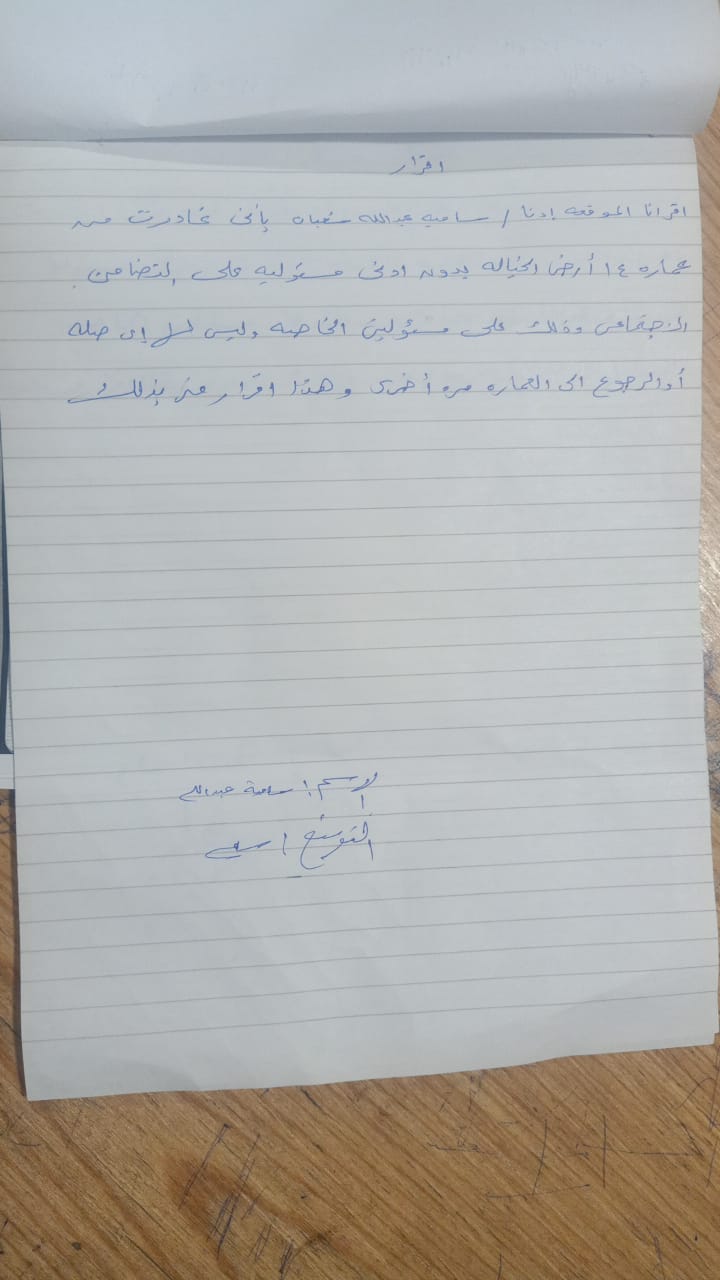 اقرار
اقر انا الموقعه ادنا / ساميه عبدالله شعبان بأنى غادرت من
عماره ١٤ أرض الخياله بدون ادنى مسئوليه على التضامن
الاجتماعى وذلك على مسؤليتى الخاصه وليس لى اى صله
أو الرجوع الى العماره مره أخرى وهذا اقرار منى بذلك
الاسم / سامية عبدالله
التوقيع /